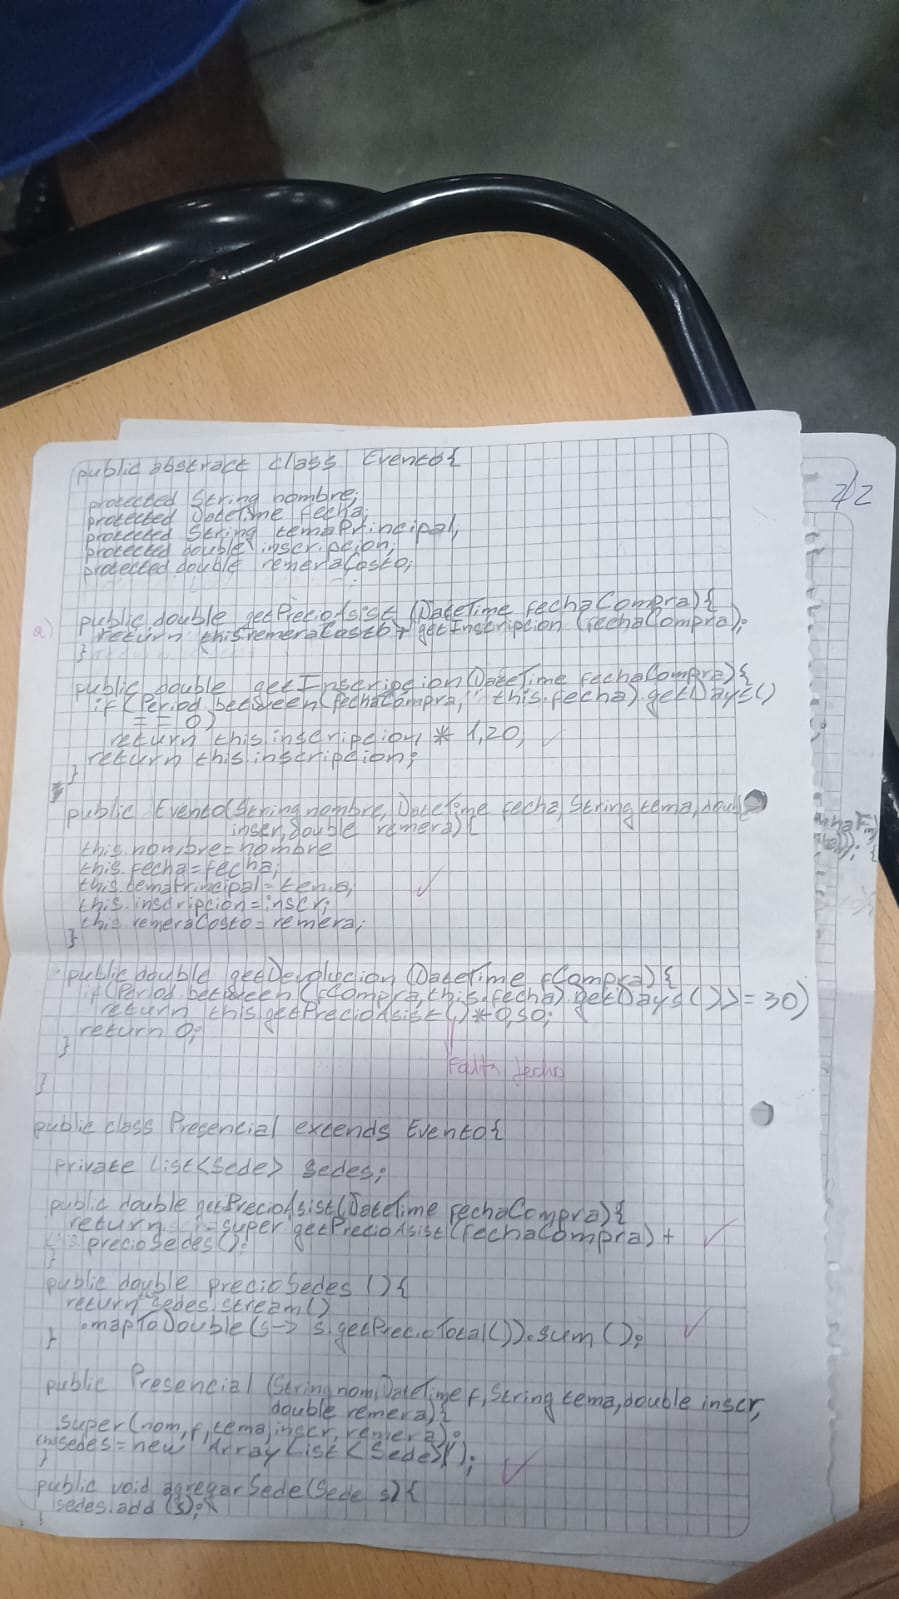 2/2
public abstract class Evento{
protected String nombre;
protected DateTime fecha;
protected String temaPrincipal;
protected double inscripcion;
protected double remeraCosto;
a)
public double getPrecioAsist (DateTime fechaCompra){
return this.remeraCosto + getInscripcion (fechaCompra);
}
public double getInscripcion (DateTime fechaCompra){
if (Period.between (fechaCompra, this.fecha).getDays()
== 0)
return this.inscripcion * 1,20;
return this.inscripcion;
}
public Evento(String nombre, DateTime fecha, String tema, doub
inscr, double remera){
this.nombre=nombre
this.fecha=fecha;
this.temaPrincipal=tema;
this.inscripcion=inscr;
this.remeraCosto=remera;
}
public double getDevolucion (DateTime fCompra){
if (Period.between (fCompra, this.fecha).getDays()>=30)
return this.getPrecioAsist()*0,50;
return 0;
}
Falta fecha
}
public class Presencial extends Evento{
private List<Sede> sedes;
public double getPrecioAsist(DateTime fechaCompra){
return super.getPrecioAsist(fechaCompra)+
precioSedes();
}
public double precioSedes (){
return sedes.stream()
.mapToDouble(s-> s.getPrecioTotal()).sum();
}
public Presencial (String nom, DateTime f, String tema, double inscr,
double remera){
super(nom, f, tema, inscr, remera);
sedes=new ArrayList<Sede>();
}
public void agregarSede(Sede s){
sedes.add (s);
}